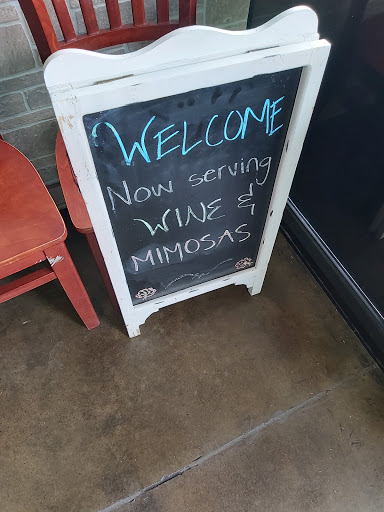 WELCOME
Now serving
WINE &
MIMOSAS